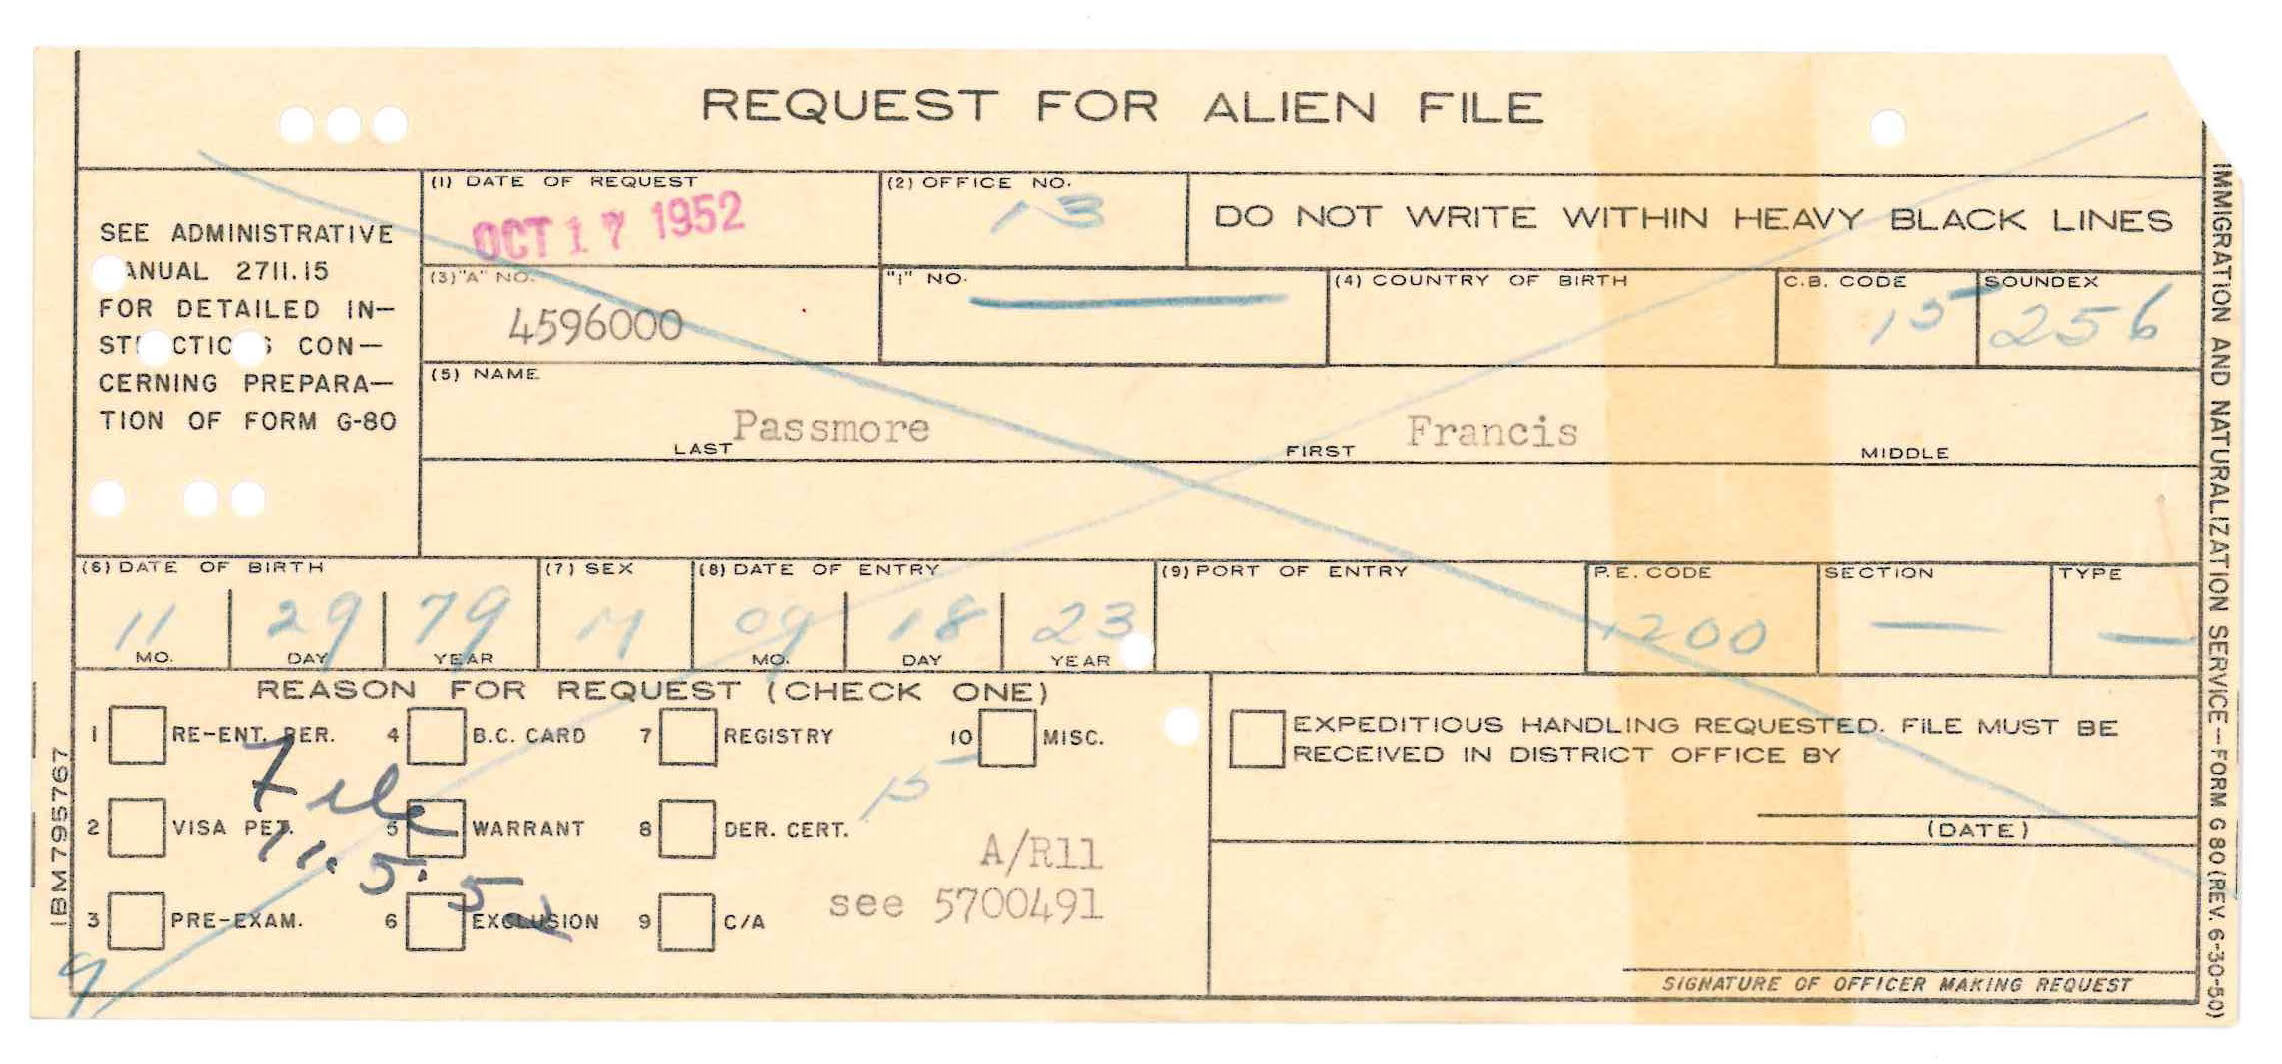 REQUEST FOR ALIEN FILE
SEE ADMINISTRATIVE
ANUAL 2711.15
FOR DETAILED IN-
ST CTIC S CON-
CERNING PREPARA-
TION OF FORM G-80
(1) DATE OF REQUEST
OCT 17 1952
(2) OFFICE NO.
13
DO NOT WRITE WITHIN HEAVY BLACK LINES
(3) "A" NO.
4596000
"I" NO.
(4) COUNTRY OF BIRTH
C.B. CODE
15
SOUNDEX
256
(5) NAME
Passmore Francis
LAST FIRST MIDDLE
(6) DATE OF BIRTH (7) SEX (8) DATE OF ENTRY (9) PORT OF ENTRY P.E. CODE SECTION TYPE
11 29 79 M 09 18 23 1200 — —
MO. DAY YEAR MO. DAY YEAR
REASON FOR REQUEST (CHECK ONE)
1 RE-ENT. PER. 4 B.C. CARD 7 REGISTRY 10 MISC.
File
15
2 VISA PET. 5 WARRANT 8 DER. CERT.
11.5.52
A/R11
see 5700491
3 PRE-EXAM. 6 EXCLUSION 9 C/A
9
EXPEDITIOUS HANDLING REQUESTED. FILE MUST BE
RECEIVED IN DISTRICT OFFICE BY
(DATE)
SIGNATURE OF OFFICER MAKING REQUEST
IBM 795767
IMMIGRATION AND NATURALIZATION SERVICE—FORM G 80 (REV. 6-30-50)